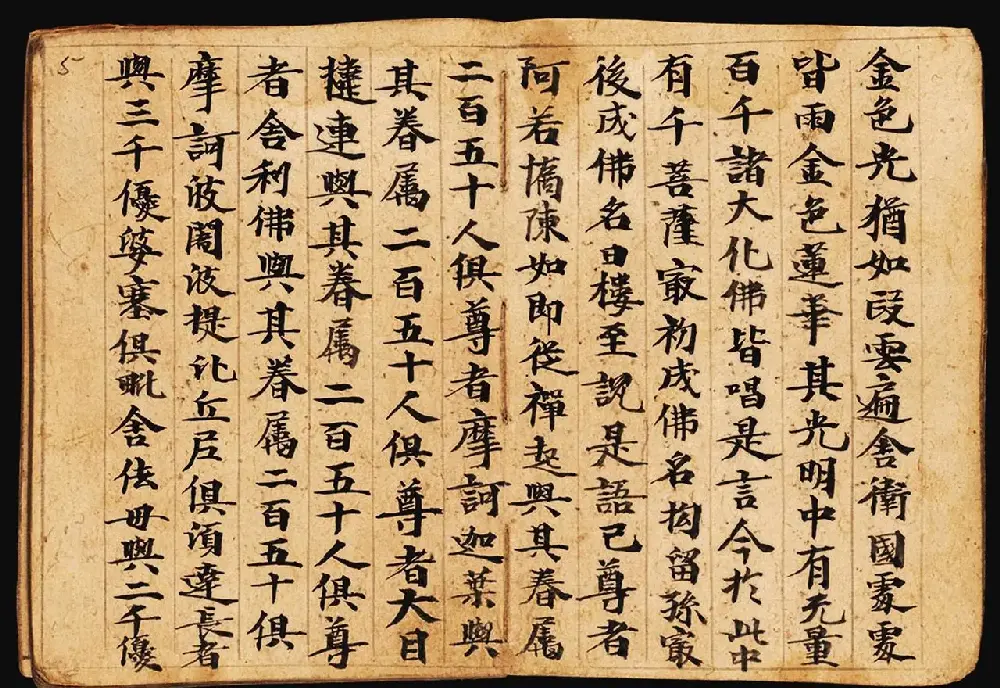 金色光猶如段雲遍舍衛國處處
皆雨金色蓮華其光明中有无量
百千諸大化佛皆唱是言今於此中
有千菩薩㝡初成佛名拘留孫㝡
後成佛名曰樓至說是語已尊者
阿若憍陳如即從禪起與其眷属
二百五十人俱尊者摩訶迦葉與
其眷属二百五十人俱尊者大目
揵連與其眷属二百五十人俱尊
者舍利佛與其眷属二百五十俱
摩訶波闍波提比丘尼俱湏達長者
與三千優婆塞俱毗舍佉母與二千優
5